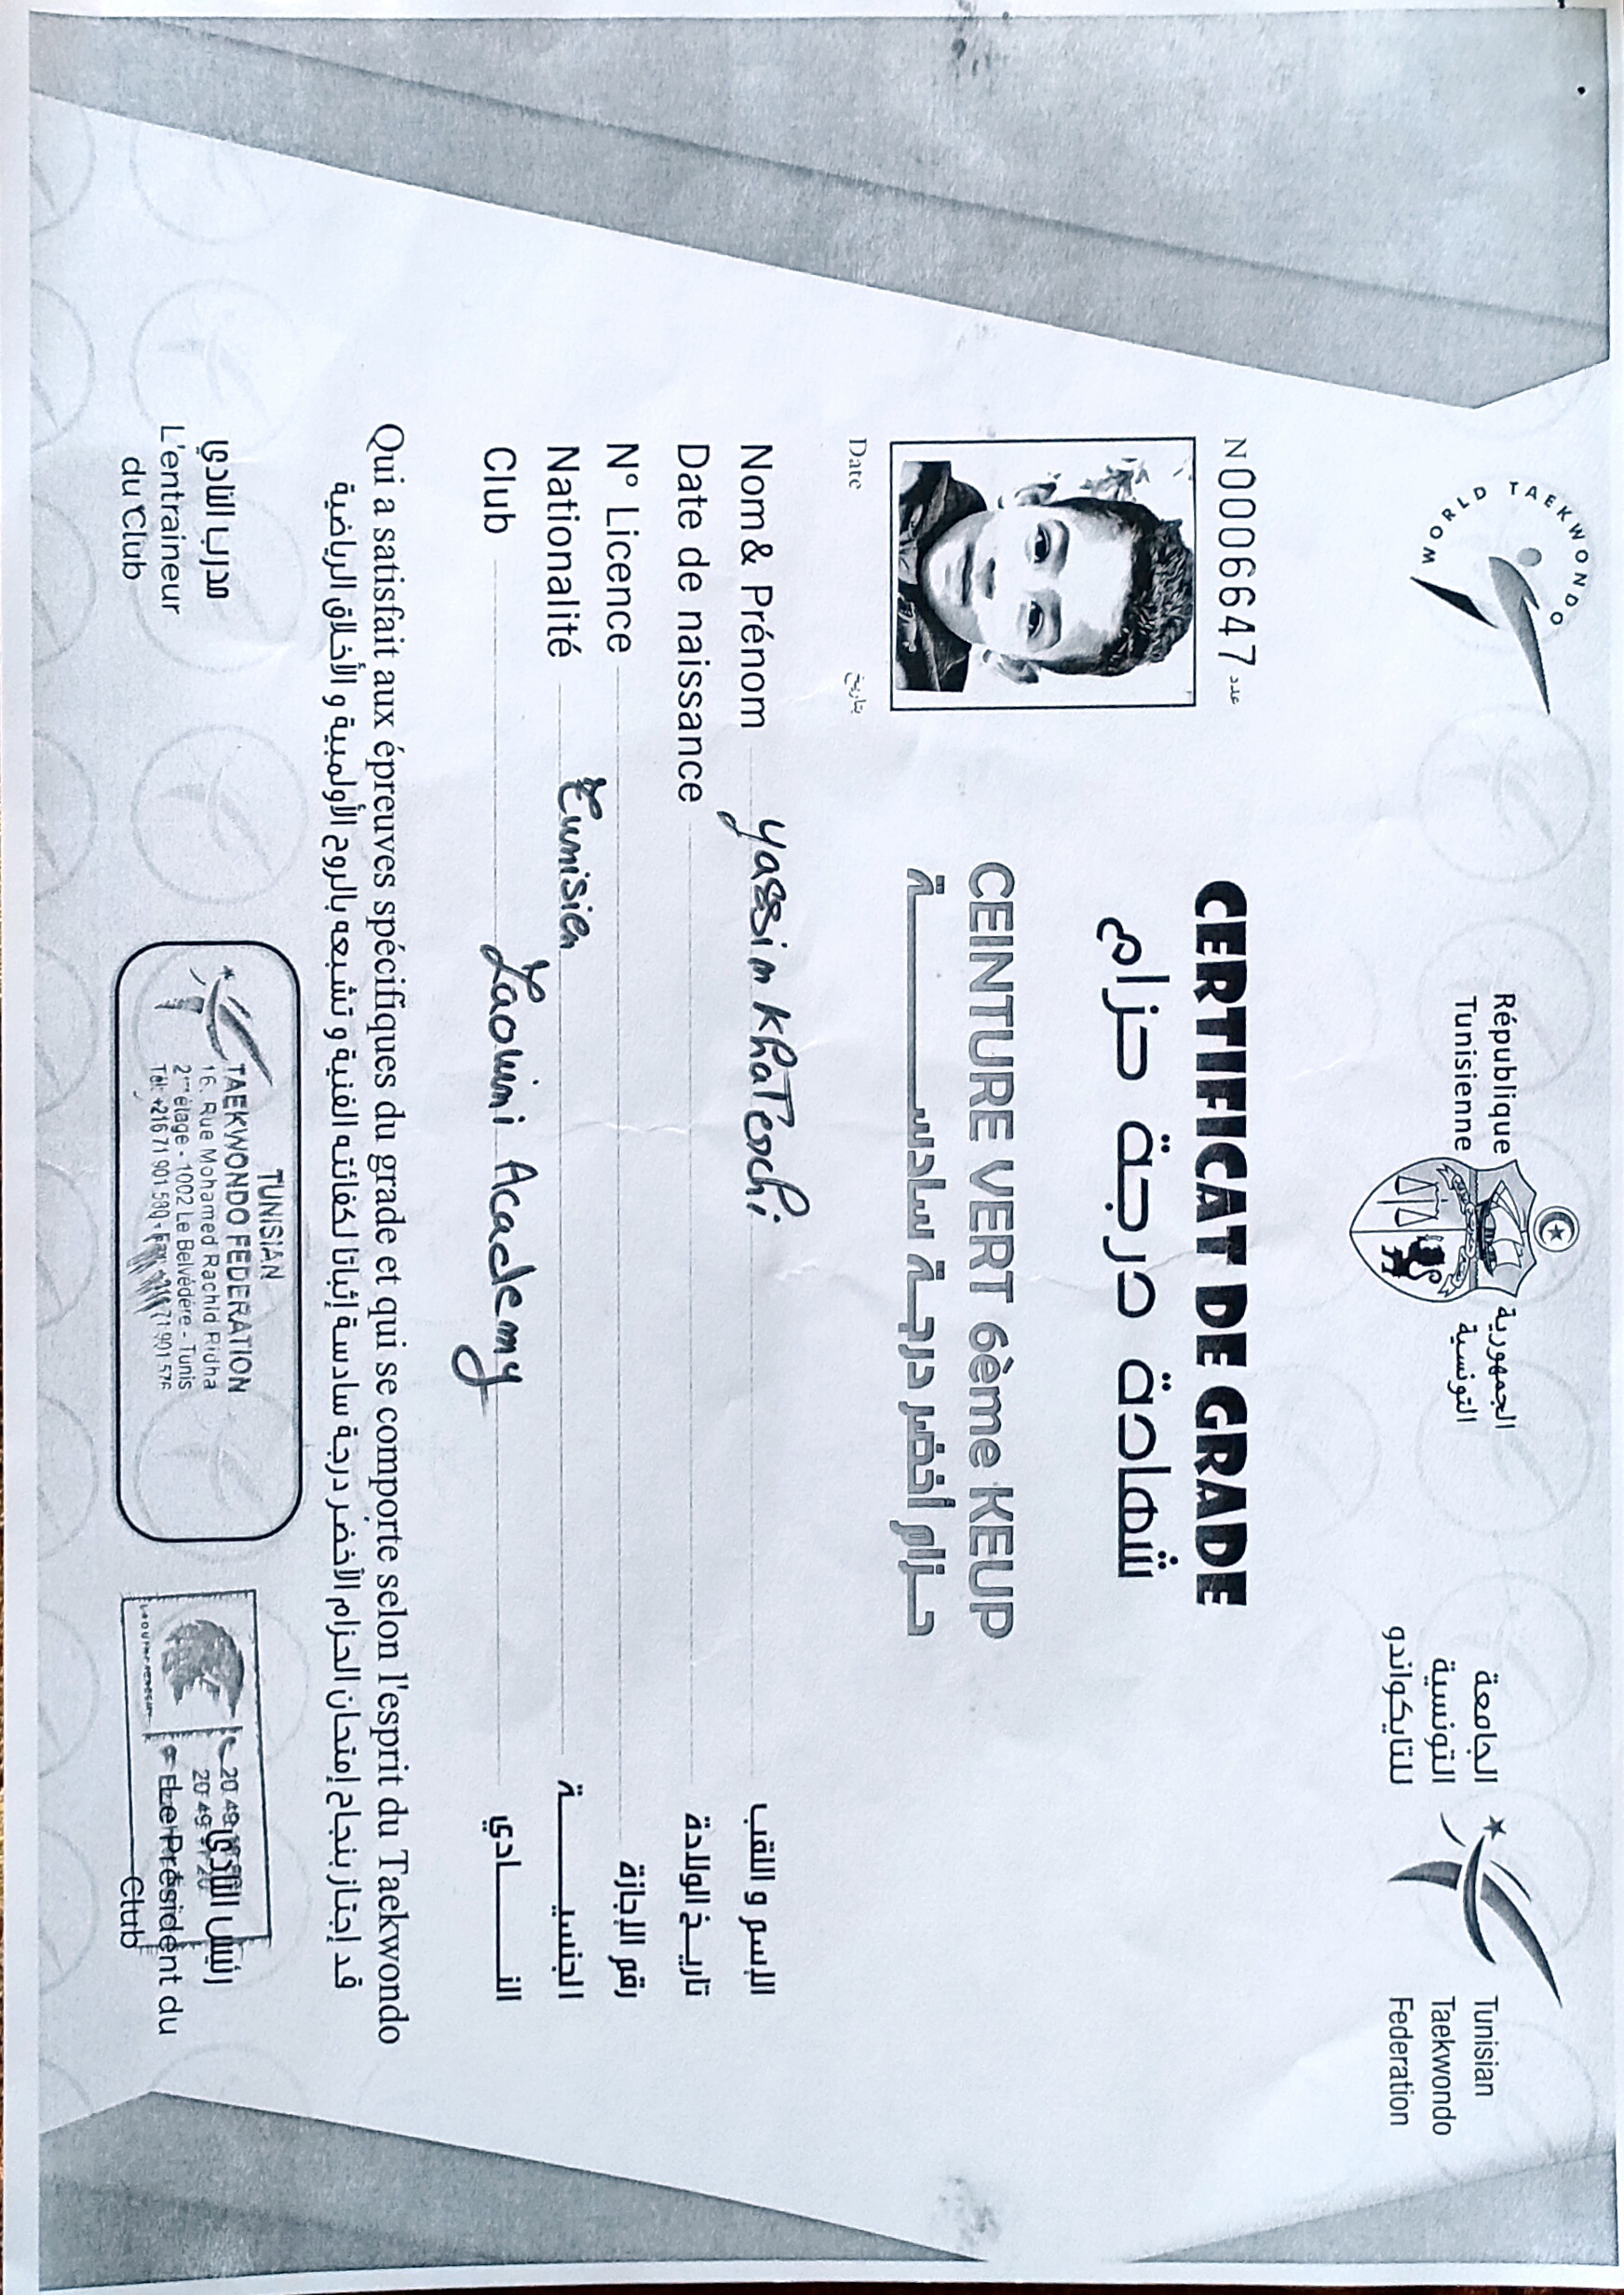 WORLD TAEKWONDO
République
Tunisienne
الجمهورية
التونسية
الجامعة
التونسية
للتايكواندو
Tunisian
Taekwondo
Federation
N 0006647 عدد
CERTIFICAT DE GRADE
شهادة درجة حزام
CEINTURE VERT 6ème KEUP
حزام أخضر درجة سادسة
Date بتاريخ
Nom & Prénom yassin khaterchi الإسم و اللقب
Date de naissance تاريخ الولادة
N° Licence رقم الإجازة
Nationalité Tunisien الجنسية
Club Laouini Academy النادي
Qui a satisfait aux épreuves spécifiques du grade et qui se comporte selon l'esprit du Taekwondo
قد إجتاز بنجاح إمتحان الحزام الأخضر درجة سادسة إثباتا لكفائته الفنية و تشبعه بالروح الأولمبية و الأخلاق الرياضية
مدرب النادي
L'entraineur
du Club
TUNISIAN
TAEKWONDO FEDERATION
16, Rue Mohamed Rachid Ridha
2ème étage - 1002 Le Belvédère - Tunis
Tél: +216 71 901 580 - Fax: +216 71 901 576
رئيس النادي
Le Président du
Club